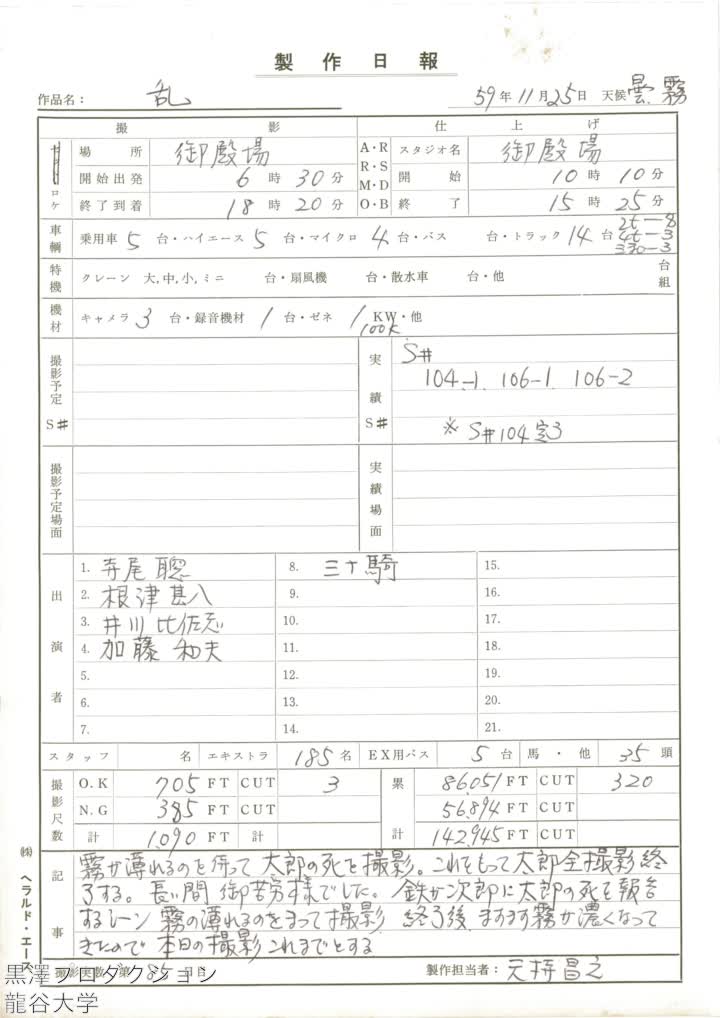 製作日報
作品名： 乱 59年11月25日 天候 曇 霧
撮影 仕上げ
ロケ 場所 御殿場 A・R R・S M・D O・B スタジオ名 御殿場
開始出発 6時30分 開始 10時10分
終了到着 18時20分 終了 15時25分
車輌 乗用車 5台・ハイエース 5台・マイクロ 4台・バス 台・トラック 14台 2t―8 4t―3
特機 クレーン 大,中,小,ミニ 台・扇風機 台・散水車 台・他 台 組
機材 キャメラ 3台・録音機材 1台・ゼネ 1 KW・他
100K
撮影予定 S# 実績 S# S#
104-1 106-1 106-2
※ S#104定3
撮影予定場面 実績場面
出演者
1. 寺尾聰 8. 三十騎 15.
2. 根津甚八 9. 16.
3. 井川比佐志 10. 17.
4. 加藤和夫 11. 18.
5. 12. 19.
6. 13. 20.
7. 14. 21.
スタッフ 名 エキストラ 185名 EX用バス 5台 馬・他 35頭
撮影尺数 O.K 705 FT CUT 3 累計 86,051 FT CUT 320
N.G 385 FT CUT 56,894 FT CUT
計 1,090 FT 計 142,945 FT CUT
記事
霧が薄れるのを待って太郎の死を撮影。これをもって太郎全撮影終
了する。長い間御苦労様でした。鉄が次郎に太郎の死を報告
するシーン 霧の薄れるのをまって撮影 終了後、ますます霧が濃くなって
きたので本日の撮影これまでとする
撮影実数 第 85日目 製作担当者： 天持昌之
㈱ヘラルド・エース
黒澤プロダクション
龍谷大学